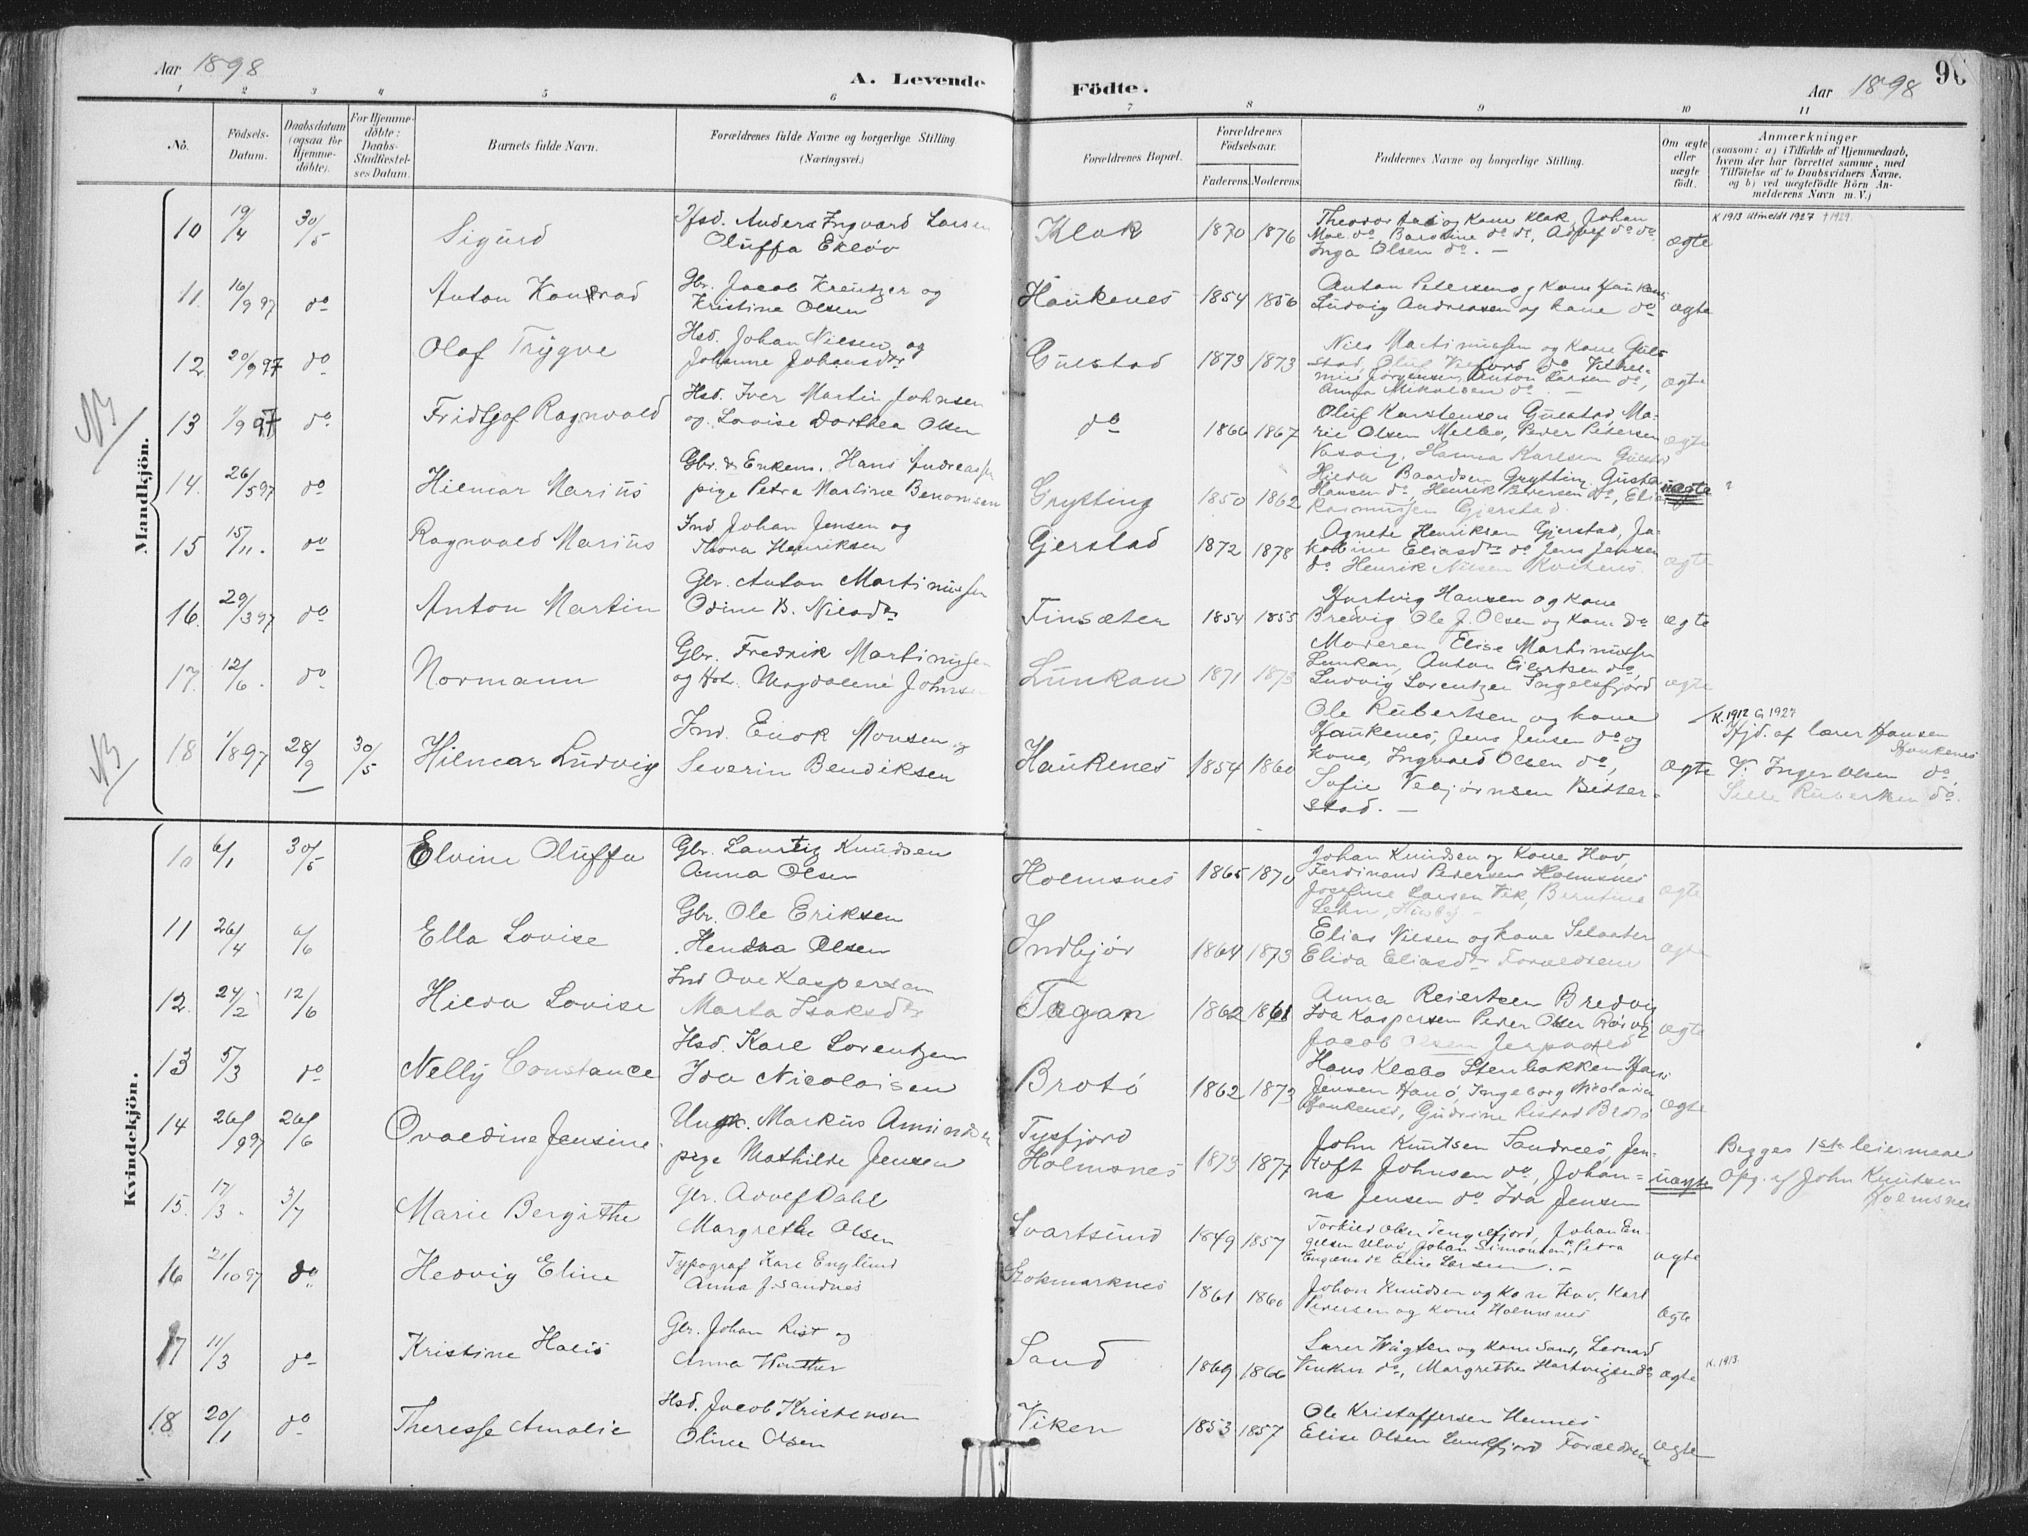 Aar 1898
A. Levende
Födte.
Aar 1898
1 2 3 4 5 6 7 8 9 10 11
No.
Födsels-Datum.
Daabsdatum (ogsaa for Hjemme-døbte).
For Hjemme-døbte: Daabs-Stadfæstel-ses Datum.
Barnets fulde Navn.
Forældrenes fulde Navne og borgerlige Stilling (Næringsvei.)
Forældrenes Bopæl.
Forældrenes Födselsaar.
Faderens. Moderens.
Faddernes Navne og borgerlige Stilling.
Om ægte eller uægte födt.
Anmærkninger
(saasom: a) i Tilfælde af Hjemmedaab,
hvem der har forrettet samme, med
Tilföielse af to Daabsvidners Navne,
og b) ved uægtefödte Börn An-
melderens Navn m. V.)
Mandkjön.
10 19/4 30/5 Sigurd
Hsd. Anders Ingvard Larsen
Oluffa Ekløv
Klak 1870 1876
Theodor og Kone Klak, Johan
Inga Olsen do. –
ægte
K 1913 Utmeldt 1927 † 1929
11. 16/9 97 do Anton Konrad
Gbr. Jacob Kreutzer og
Kristine Olsen
Haukenes 1854 1856
Anton Petersen og Kone Haukenes
Ludvig Andreassen og kone do
ægte
12. 20/9 97 do Olaf Trygve
Hsd. Johan Nilsen og
Johanne Johansdr
Gulstad 1873 1873
Nils Martinussen og Kone Gul-
stad, Oluf do Vilhel-
mine Jørgensen, Anton Larsen do,
Anna Mikalsen do. –
ægte
NB
13 1/9 97 do Fridtjof Ragnvald
Hsd. Iver Martin Johnsen
og Lovise Dorthea Olsen
do 1866 1867
Oluf Karstensen Gulstad, Ma-
rie Olsen Melbo, Peder Petersen
Vasvig, Hanna Karlsen Gulstad
ægte
14. 26/5 97 do Hilmar Marius
Gbr. & Enkem. Hans Andreassen
pige Petra Martine Benonisen
Grytting 1850 1862
Hilda Baardsen Grytting, Gusta
Hansen do, Henrik Pedersen do, Elise
Rasmussen Gjerstad.
uægte ?
15 15/11. do Ragnvald Marius
Ind Johan Jensen og
Thora Henriksen
Gjerstad 1872 1878
Agnete Henriksen Gjerstad, Ja-
kobine Eliasdr do Jens Jensen
do Henrik Nilsen
ægte
16. 29/3 97 do Anton Martin
Gbr. Anton Martinussen
Odine B. Nilsdr
Finsæter 1854 1855
Hartvig Hansen og Kone
Bredvig Ole J. Olsen og Kone do
ægte
17. 12/6. do Normann
Gbr. Fredrik Martinussen
og Hstr. Magdalene Johnsen
Lunkan 1871 1873
Moderen, Elise Martinussen
Lunkan, Anton Eilertsen do
Ludvig Lorentzen Ingelsfjord
ægte
NB
18 1/8 97 28/9 30/5 Hilmar Ludvig
Ind. Enok Monsen og
Severin Bendiksen
Haukenes 1854 1860
Ole Rubertsen og kone
Haukenes, Jens Jensen do og
Kone, Ingvald Olsen do,
Sofie Vebjørnsen Bitter-
stad. –
ægte
K. 1912 G 1927
Hjd. af lærer Hansen
Haukenes
V. Inger Olsen do,
Sille Rubertsen do.
Kvindekjön.
10 6/1 30/5 Elvine Oluffa
Gbr. Lauritz Knudsen
Anna Olsen
Holmsnes 1865 1870
Johan Knudsen og Kone Hov,
Ferdinand Pedersen Holmsnes
Josefine Larsen Vik, Berntine
ægte
11 26/4 6/6 Ella Lovise
Gbr. Ole Eriksen
Hendrea Olsen
Indbjør 1864 1873
Elias Nilsen og kone Selaater
Elida Eliasdr Forældrene
ægte
12. 24/2 12/6 Hilda Lovise
Ind Ove Kaspersen
Marta Isaksdr
Tegan 1862 1861
Anna Reiertsen Bredvig
Ida Kaspersen Peder Olsen
Jacob Olsen
ægte
13 5/3 do Nelly Constance
Hsd. Karl Lorentzen
Ida Nicolaisen
Brotø 1862 1873
Hans Klæbo Stenbakken
Jensen Hanø, Ingeborg Nicolaisen
Haukenes, Gudrine Ristad Brotø
ægte
14 26/9 97 26/6 Ovaldine Jensine
Ungk. Markus Amundsen
pige Mathilde Jensen
Tysfjord
Holmsnes 1873 1877
John Knutsen Sandnes, Jen-
toft Johnsen do, Johan-
na Jensen do Ida Jensen
uægte
Begges 1ste leiermaal
Opg. af John Knudsen
Holmsnes
15. 17/3. 3/7 Marie Bergitthe
Gbr. Adolf Dahl
Margrethe Olsen
Svartsund 1849 1857
Torkild Olsen Ingelsfjord, Johan En-
gelsen Ulvø, Johan Simonsen, Petra
Engelsen do Elise Larsen. –
ægte
16 21/10 97 do Hedvig Eline
Typograf Karl Englund
Anna J. Sandnes
Stokmarknes 1861 1860
Johan Knudsen og Kone Hov, Karl
Pedersen og kone Holmsnes
ægte
17 11/3 do Kristine Halis
Gbr. Johan Rist og
Anna Winther
Sand 1869 1866
Lærer Wågten og Kone Sand, Leonard
Vinther do, Margrethe Hartvigsen do
ægte
K. 1913
18. 20/1 do Theresse Amalie
Hsd. Jacob Kristensen
Oline Olsen
Viken 1853 1857
Ole Kristoffersen Hennes
Elise Olsen Lunkfjord Forældrene
ægte